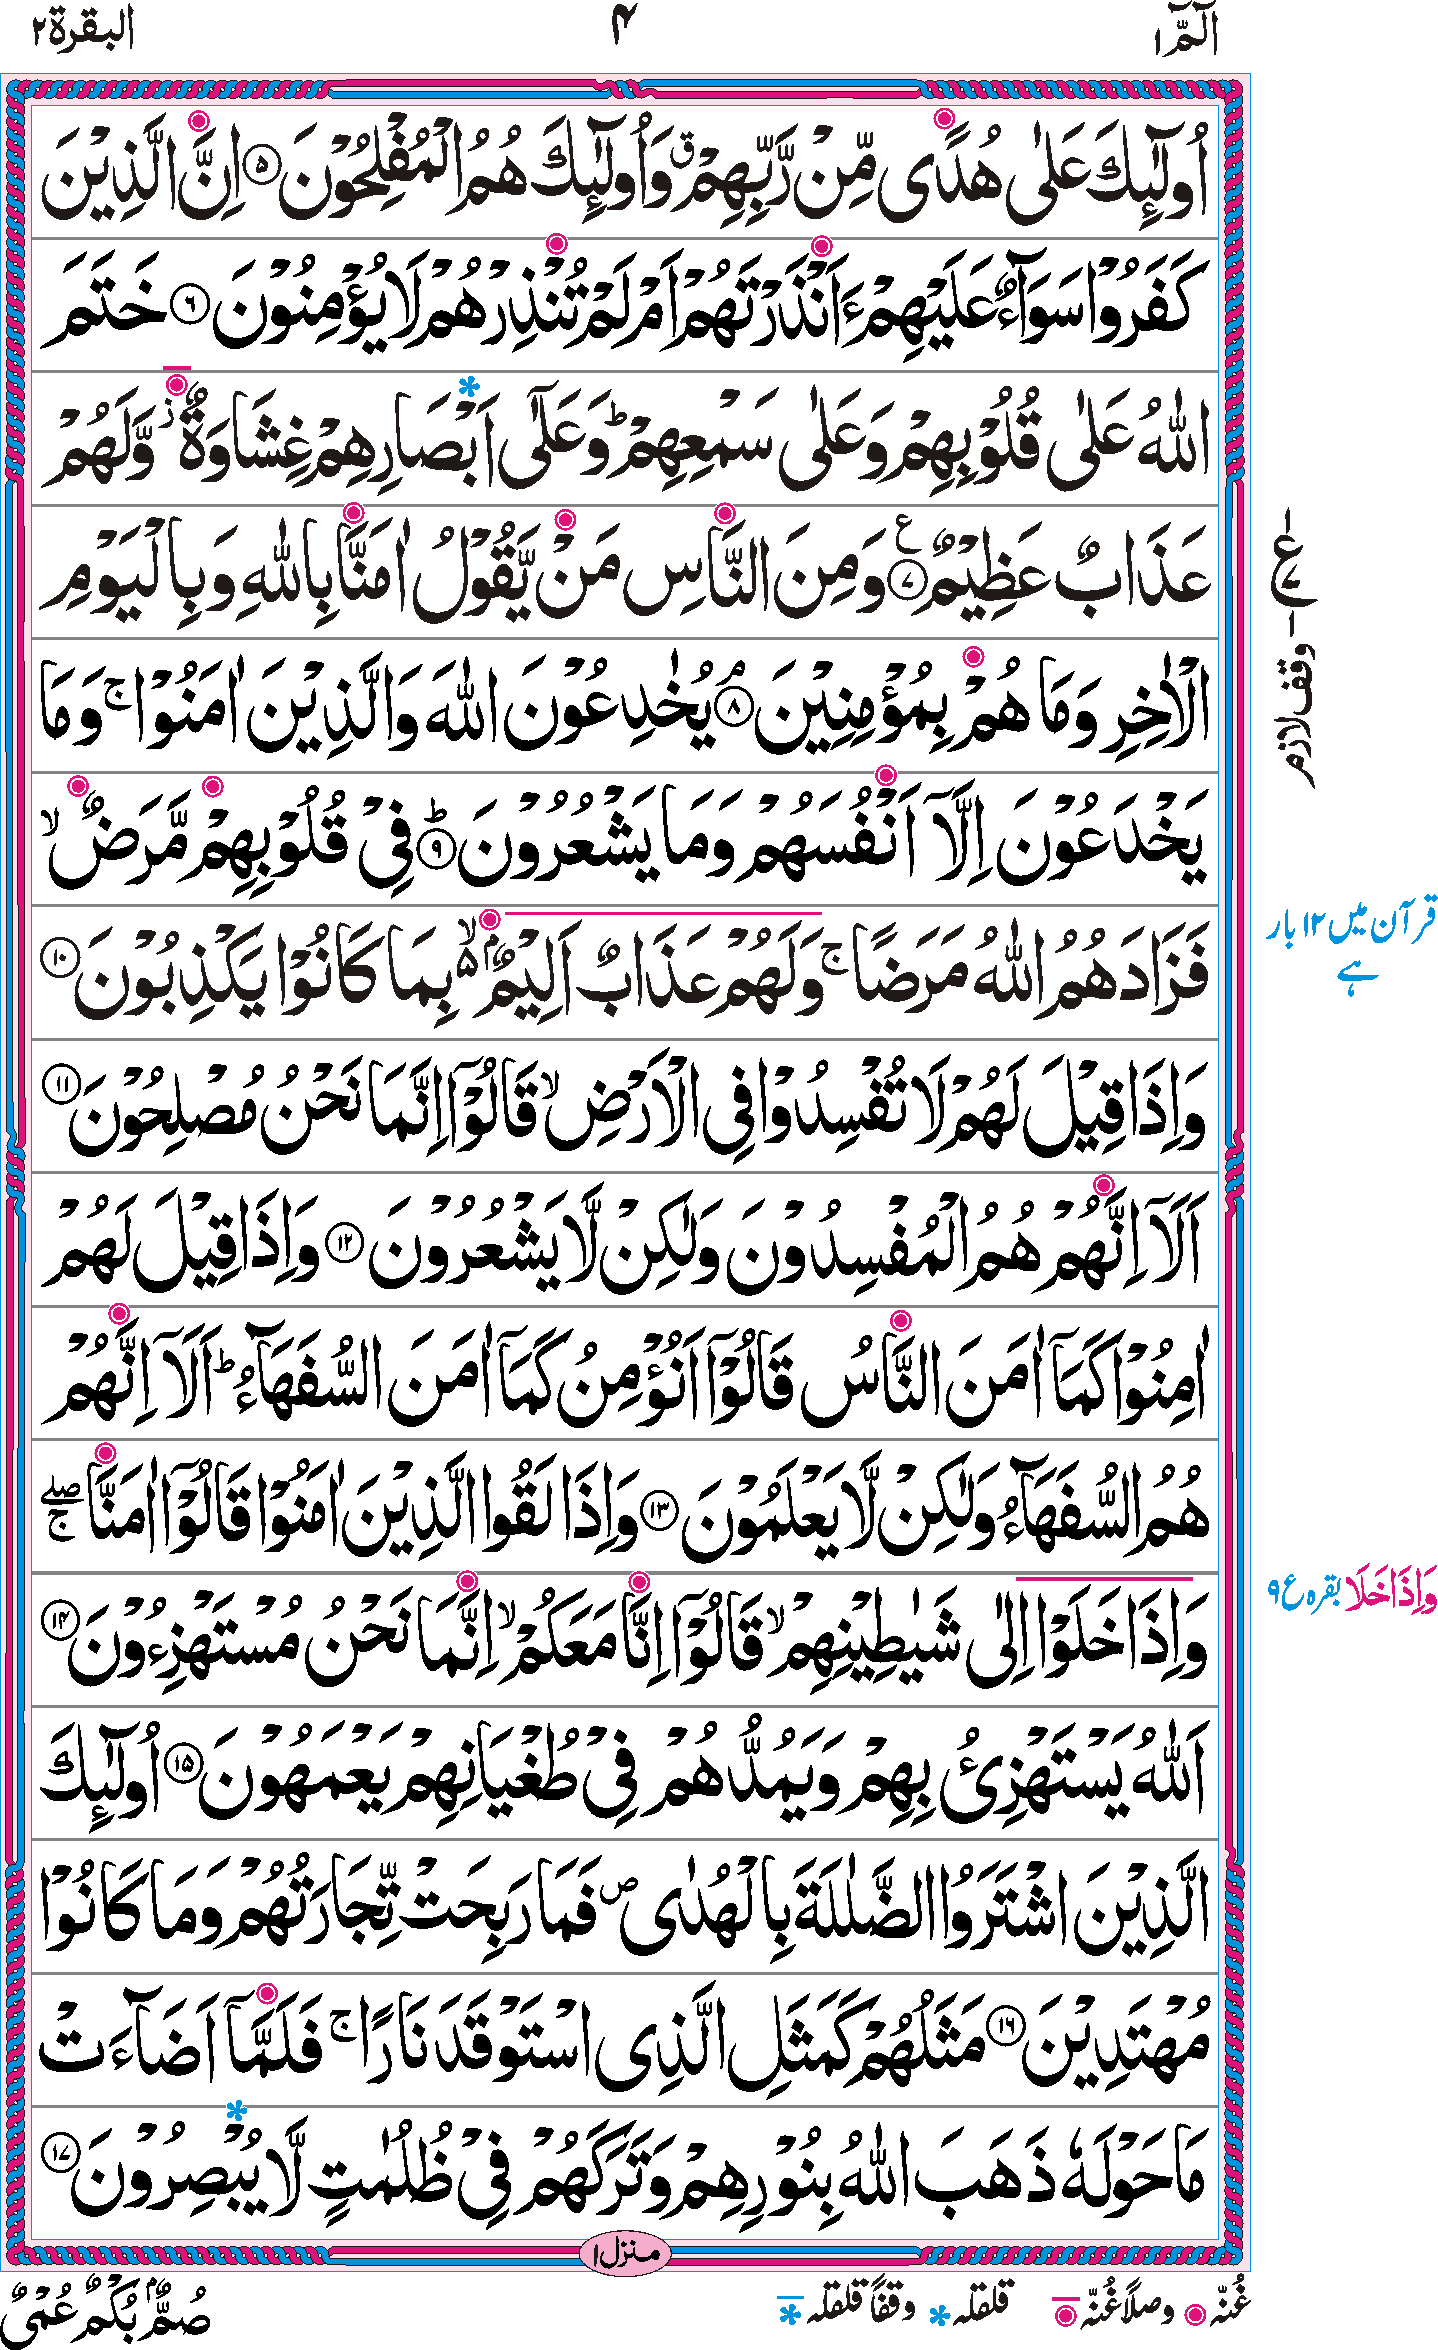 الٓمّٓ ۱
۴
البقرة ۲
اُولٰٓئِكَ عَلٰى هُدًى مِّنْ رَّبِّهِمْ ۗ وَاُولٰٓئِكَ هُمُ الْمُفْلِحُوْنَ ۵ اِنَّ الَّذِيْنَ
كَفَرُوْا سَوَآءٌ عَلَيْهِمْ ءَاَنْذَرْتَهُمْ اَمْ لَمْ تُنْذِرْهُمْ لَا يُؤْمِنُوْنَ ۶ خَتَمَ
اللّٰهُ عَلٰى قُلُوْبِهِمْ وَعَلٰى سَمْعِهِمْ ؕ وَعَلٰٓى اَبْصَارِهِمْ غِشَاوَةٌ ز وَّلَهُمْ
عَذَابٌ عَظِيْمٌ ۷ ع وَمِنَ النَّاسِ مَنْ يَّقُوْلُ اٰمَنَّا بِاللّٰهِ وَبِالْيَوْمِ
الْاٰخِرِ وَمَا هُمْ بِمُؤْمِنِيْنَ ۘ ۸ يُخٰدِعُوْنَ اللّٰهَ وَالَّذِيْنَ اٰمَنُوْا ۚ وَمَا
يَخْدَعُوْنَ اِلَّآ اَنْفُسَهُمْ وَمَا يَشْعُرُوْنَ ؕ ۹ فِيْ قُلُوْبِهِمْ مَّرَضٌ ۙ
فَزَادَهُمُ اللّٰهُ مَرَضًا ۚ وَلَهُمْ عَذَابٌ اَلِيْمٌۢ ۙ ۵ بِمَا كَانُوْا يَكْذِبُوْنَ ۱۰
وَاِذَا قِيْلَ لَهُمْ لَا تُفْسِدُوْا فِى الْاَرْضِ ۙ قَالُوْٓا اِنَّمَا نَحْنُ مُصْلِحُوْنَ ۱۱
اَلَآ اِنَّهُمْ هُمُ الْمُفْسِدُوْنَ وَلٰكِنْ لَّا يَشْعُرُوْنَ ۱۲ وَاِذَا قِيْلَ لَهُمْ
اٰمِنُوْا كَمَآ اٰمَنَ النَّاسُ قَالُوْٓا اَنُؤْمِنُ كَمَآ اٰمَنَ السُّفَهَآءُ ؕ اَلَآ اِنَّهُمْ
هُمُ السُّفَهَآءُ وَلٰكِنْ لَّا يَعْلَمُوْنَ ۱۳ وَاِذَا لَقُوا الَّذِيْنَ اٰمَنُوْا قَالُوْٓا اٰمَنَّا ۖۚ
وَاِذَا خَلَوْا اِلٰى شَيٰطِيْنِهِمْ ۙ قَالُوْٓا اِنَّا مَعَكُمْ ۙ اِنَّمَا نَحْنُ مُسْتَهْزِءُوْنَ ۱۴
اَللّٰهُ يَسْتَهْزِئُ بِهِمْ وَيَمُدُّهُمْ فِيْ طُغْيَانِهِمْ يَعْمَهُوْنَ ۱۵ اُولٰٓئِكَ
الَّذِيْنَ اشْتَرَوُا الضَّلٰلَةَ بِالْهُدٰى ص فَمَا رَبِحَتْ تِّجَارَتُهُمْ وَمَا كَانُوْا
مُهْتَدِيْنَ ۱۶ مَثَلُهُمْ كَمَثَلِ الَّذِى اسْتَوْقَدَ نَارًا ۚ فَلَمَّآ اَضَآءَتْ
مَا حَوْلَهٗ ذَهَبَ اللّٰهُ بِنُوْرِهِمْ وَتَرَكَهُمْ فِيْ ظُلُمٰتٍ لَّا يُبْصِرُوْنَ ۱۷
ع
وقف لازم
قرآن میں ۱۲ بار
ہے
وَاِذَا خَلَا بقرہ ع ۹
منزل ۱
غُنّہ وصلاً غُنّہ قلقلہ وقفاً قلقلہ
صُمٌّۢ بُكْمٌ عُمْىٌ